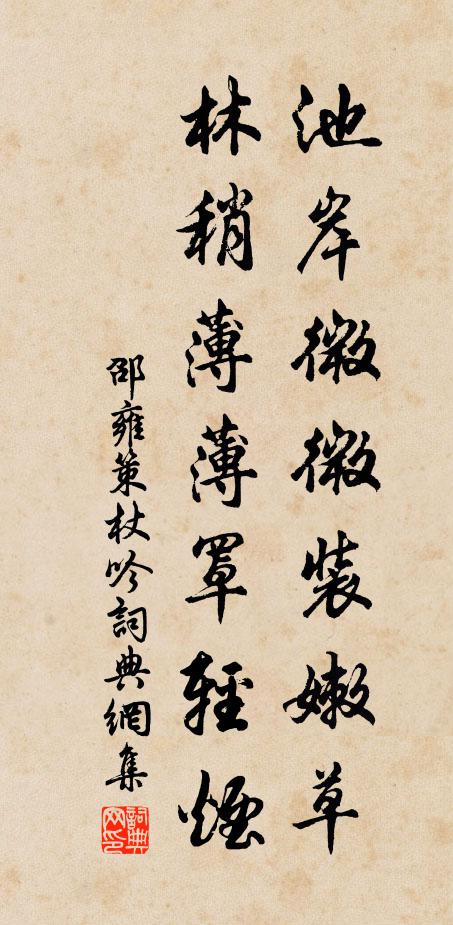 池岸微微裝嫩草
林稍薄薄罩輕煙
邵雍策杖吟詞典網集
詞典網印